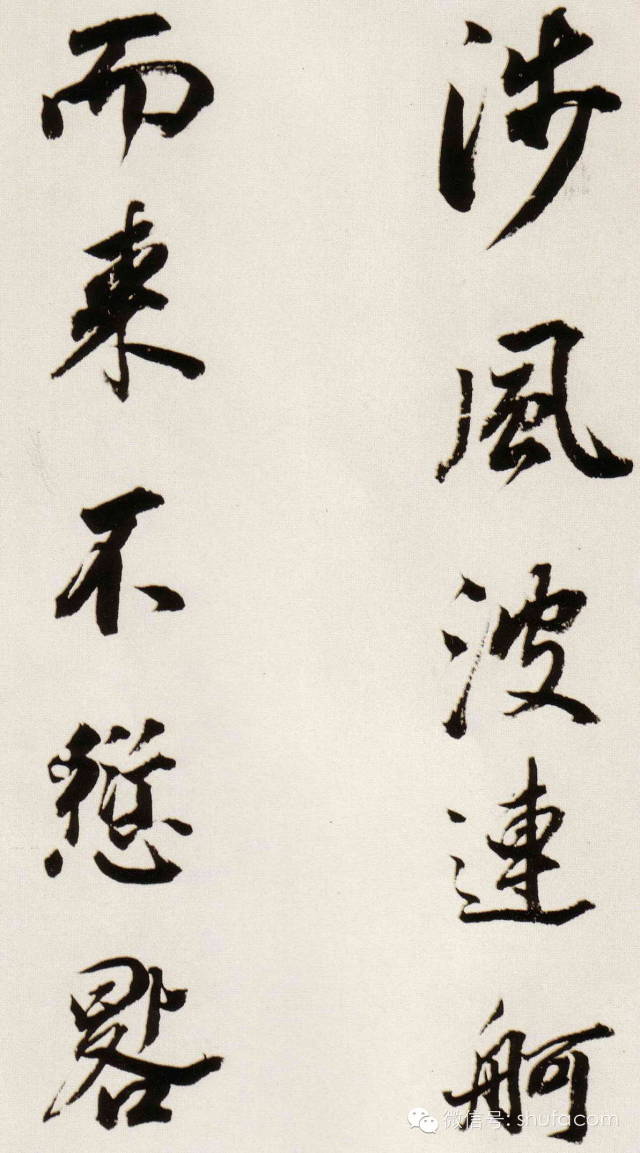 涉風波連舸
而來不愆晷
微信号: shufacom